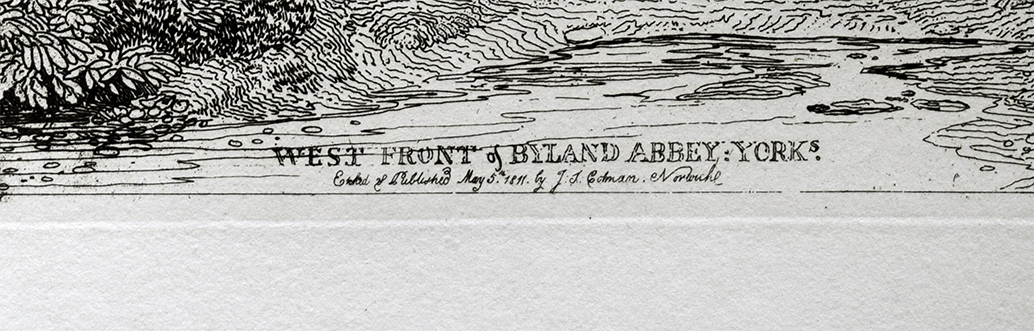 WEST FRONT of BYLAND ABBEY: YORKs.
Etched & Published May 5.th 1811. by J. S. Cotman. Norwich